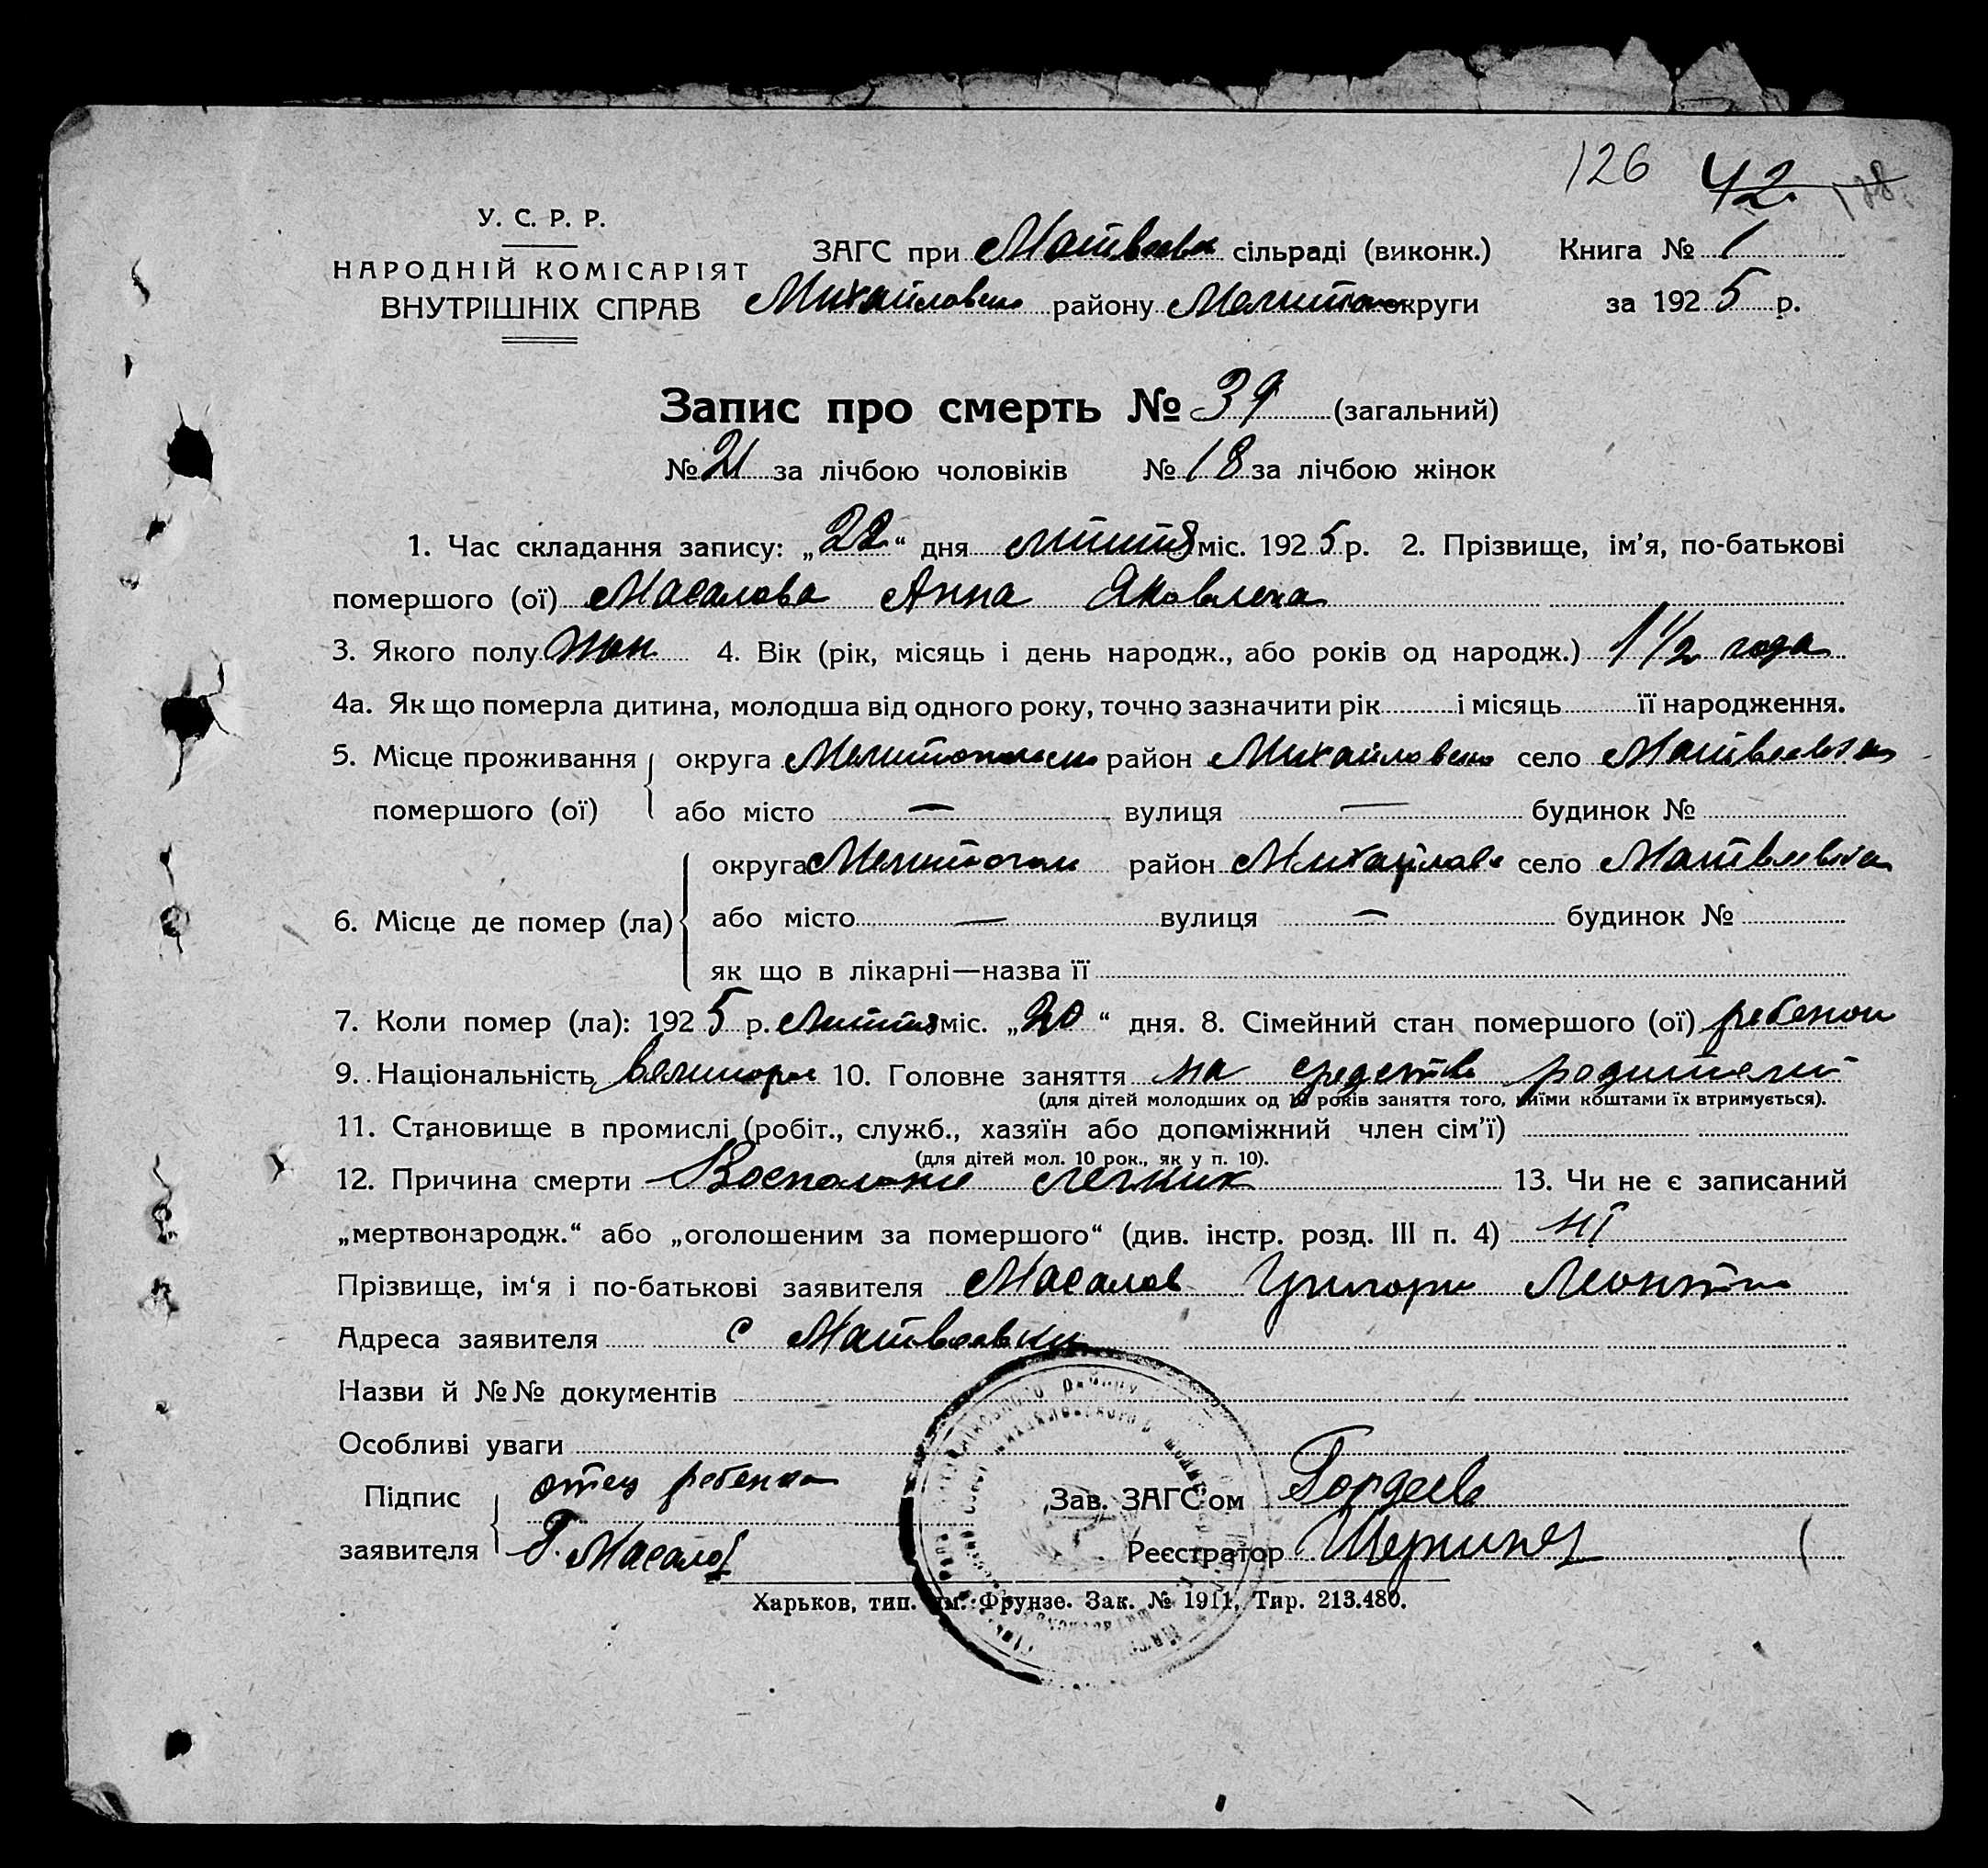 126 42. 128.
У. С. Р. Р.
НАРОДНІЙ КОМІСАРІЯТ
ВНУТРІШНІХ СПРАВ
ЗАГС при Матвеевс сільраді (виконк.) Книга № 1
Михайловско району Мелитоп округи за 1925 р.
Запис про смерть № 39 (загальний)
№ 21 за лічбою чоловіків № 18 за лічбою жінок
1. Час складання запису: „22“ дня міс. 1925 р. 2. Прізвище, ім’я, по-батькові
помершого (ої) Масалова Анна Яковлена
3. Якого полу жен 4. Вік (рік, місяць і день народж., або років од народж.) 1 1/2 года
4а. Як що померла дитина, молодша від одного року, точно зазначити рік і місяць її народження.
5. Місце проживання округа Мелитопольско район Михайловско село Матвеевка
помершого (ої) або місто — вулиця — будинок №
округа Мелитопол район Михайлов село Матвеевка
6. Місце де помер (ла) або місто — вулиця — будинок №
як що в лікарні—назва її
7. Коли помер (ла): 1925 р. міс. „20“ дня. 8. Сімейний стан помершого (ої) ребенок
9. Національність великорос 10. Головне заняття на средства родителей
(для дітей молодших од 10 років заняття того, чиїми коштами їх втримується).
11. Становище в промислі (робіт., служб., хазяїн або допоміжний член сім’ї)
(для дітей мол. 10 рок., як у п. 10).
12. Причина смерти Восполение легких 13. Чи не є записаний
„мертвонародж.“ або „оголошеним за помершого“ (див. інстр. розд. III п. 4) ні
Прізвище, ім‘я і по-батькові заявителя Масалов Григори Леонти
Адреса заявителя с Матвеевки
Назви й №№ документів
Особливі уваги
Підпис отец ребенка Зав. ЗАГС’ом Гордеев
заявителя Г. Масалов Реєстратор
Харьков, тип. им. Фрунзе. Зак. № 1911, Тир. 213.480.